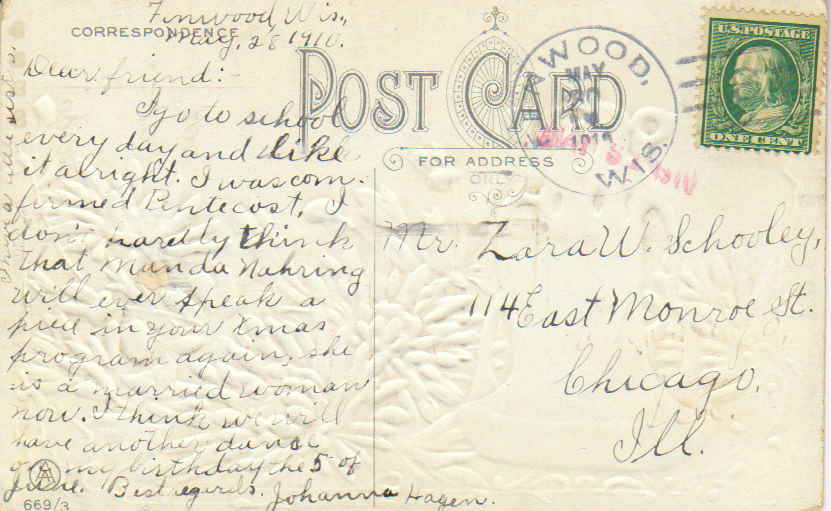 Finwood, Wis.,
CORRESPONDENCE
May, 28 1910.
Dear friend:
I go to school
every day and like
it alright. I was com-
firmed Pentecost, I
don't hardly think
that Manda Nahring
will ever speak a
piece in your Xmas
program again, she
is a married woman
now. I think we will
have another dance
on my birthday the 5 of
June. Best regards. Johanna Hagen.
669/3
POST CARD
FOR ADDRESS
ONLY
WOOD,
WIS.
MAY
1910
1910
U.S. POSTAGE
ONE CENT
Mr. Zara W. Schooley,
114 East Monroe St.
Chicago,
Ill.